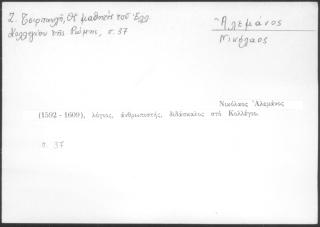 Ζ. Τσιρπανλή, Οἱ μαθητές τοῦ Ἑλλ.
Κολλεγίου τῆς Ρώμης, σ. 37
Ἀλεμάνος
Νικόλαος
Νικόλαος Ἀλεμάνος
(1592 - 1609), λόγιος, ἀνθρωπιστής, διδάσκαλος στό Κολλέγιο.
σ. 37